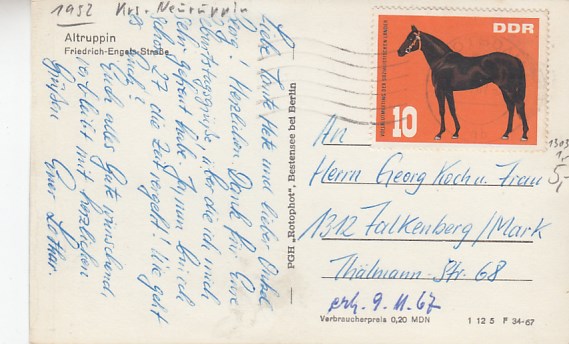 1952 Krs. Neuruppin
Altruppin
Friedrich-Engels-Straße
Liebe Tante Hete und lieber Onkel
Georg. Herzlichen Dank für Eure
Geburtstagsgrüße, über die ich mich
sehr gefreut habe. Ja nun bin ich
schon 27, die Zeit vergeht! Wie geht
es Euch?
Euch alles Gute wünschend,
verbleibt mit herzlichen
Grüßen Euer Lothar.
PGH „Rotophot", Bestensee bei Berlin
DDR
10
An
Herrn Georg Koch u. Frau
1312 Falkenberg/Mark
Thälmann-Str. 68
erh. 9.11.67
Verbraucherpreis 0,20 MDN 1 12 5 F 34-67
1303
5,-